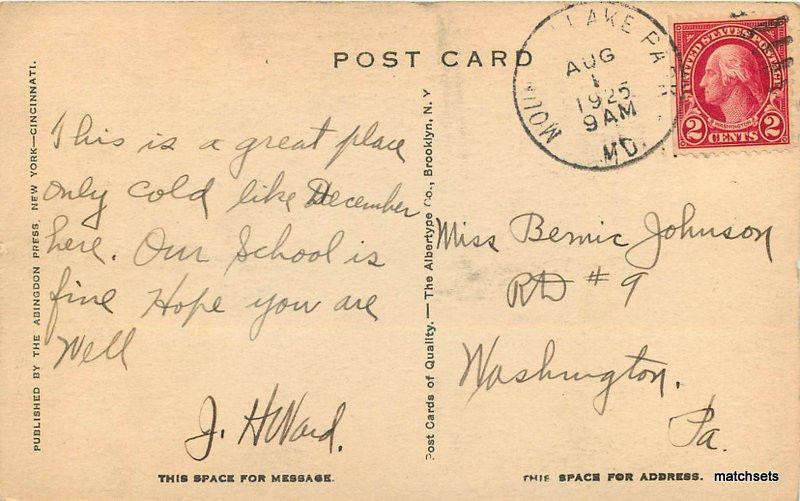 POST CARD
MOU LAKE PARK
AUG
1
1925
9AM
MD.
UNITED STATES POSTAGE
WASHINGTON
2 CENTS 2
PUBLISHED BY THE ABINGDON PRESS, NEW YORK—CINCINNATI.
This is a great place
only cold like December
here. Our School is
fine Hope you are
Well
J. H Ward.
THIS SPACE FOR MESSAGE.
Post Cards of Quality.—The Albertype Co., Brooklyn, N.Y
Miss Bernic Johnson
RD #9
Washington.
Pa.
THIS SPACE FOR ADDRESS.
matchsets